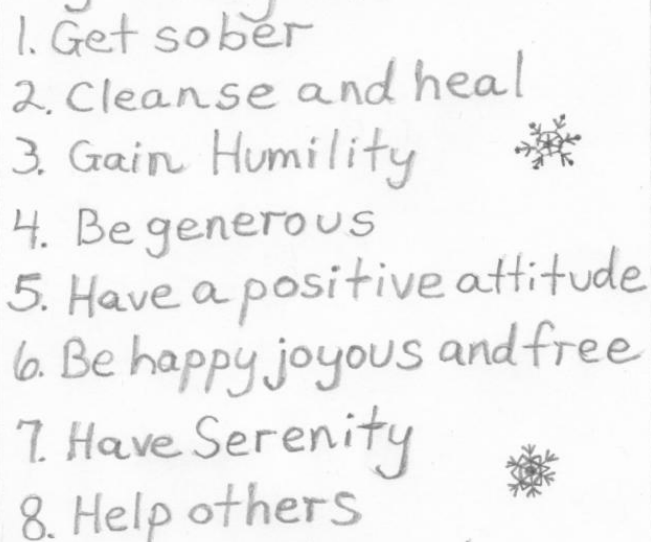 1. Get sober
2. Cleanse and heal
3. Gain Humility
4. Be generous
5. Have a positive attitude
6. Be happy joyous and free
7. Have Serenity
8. Help others